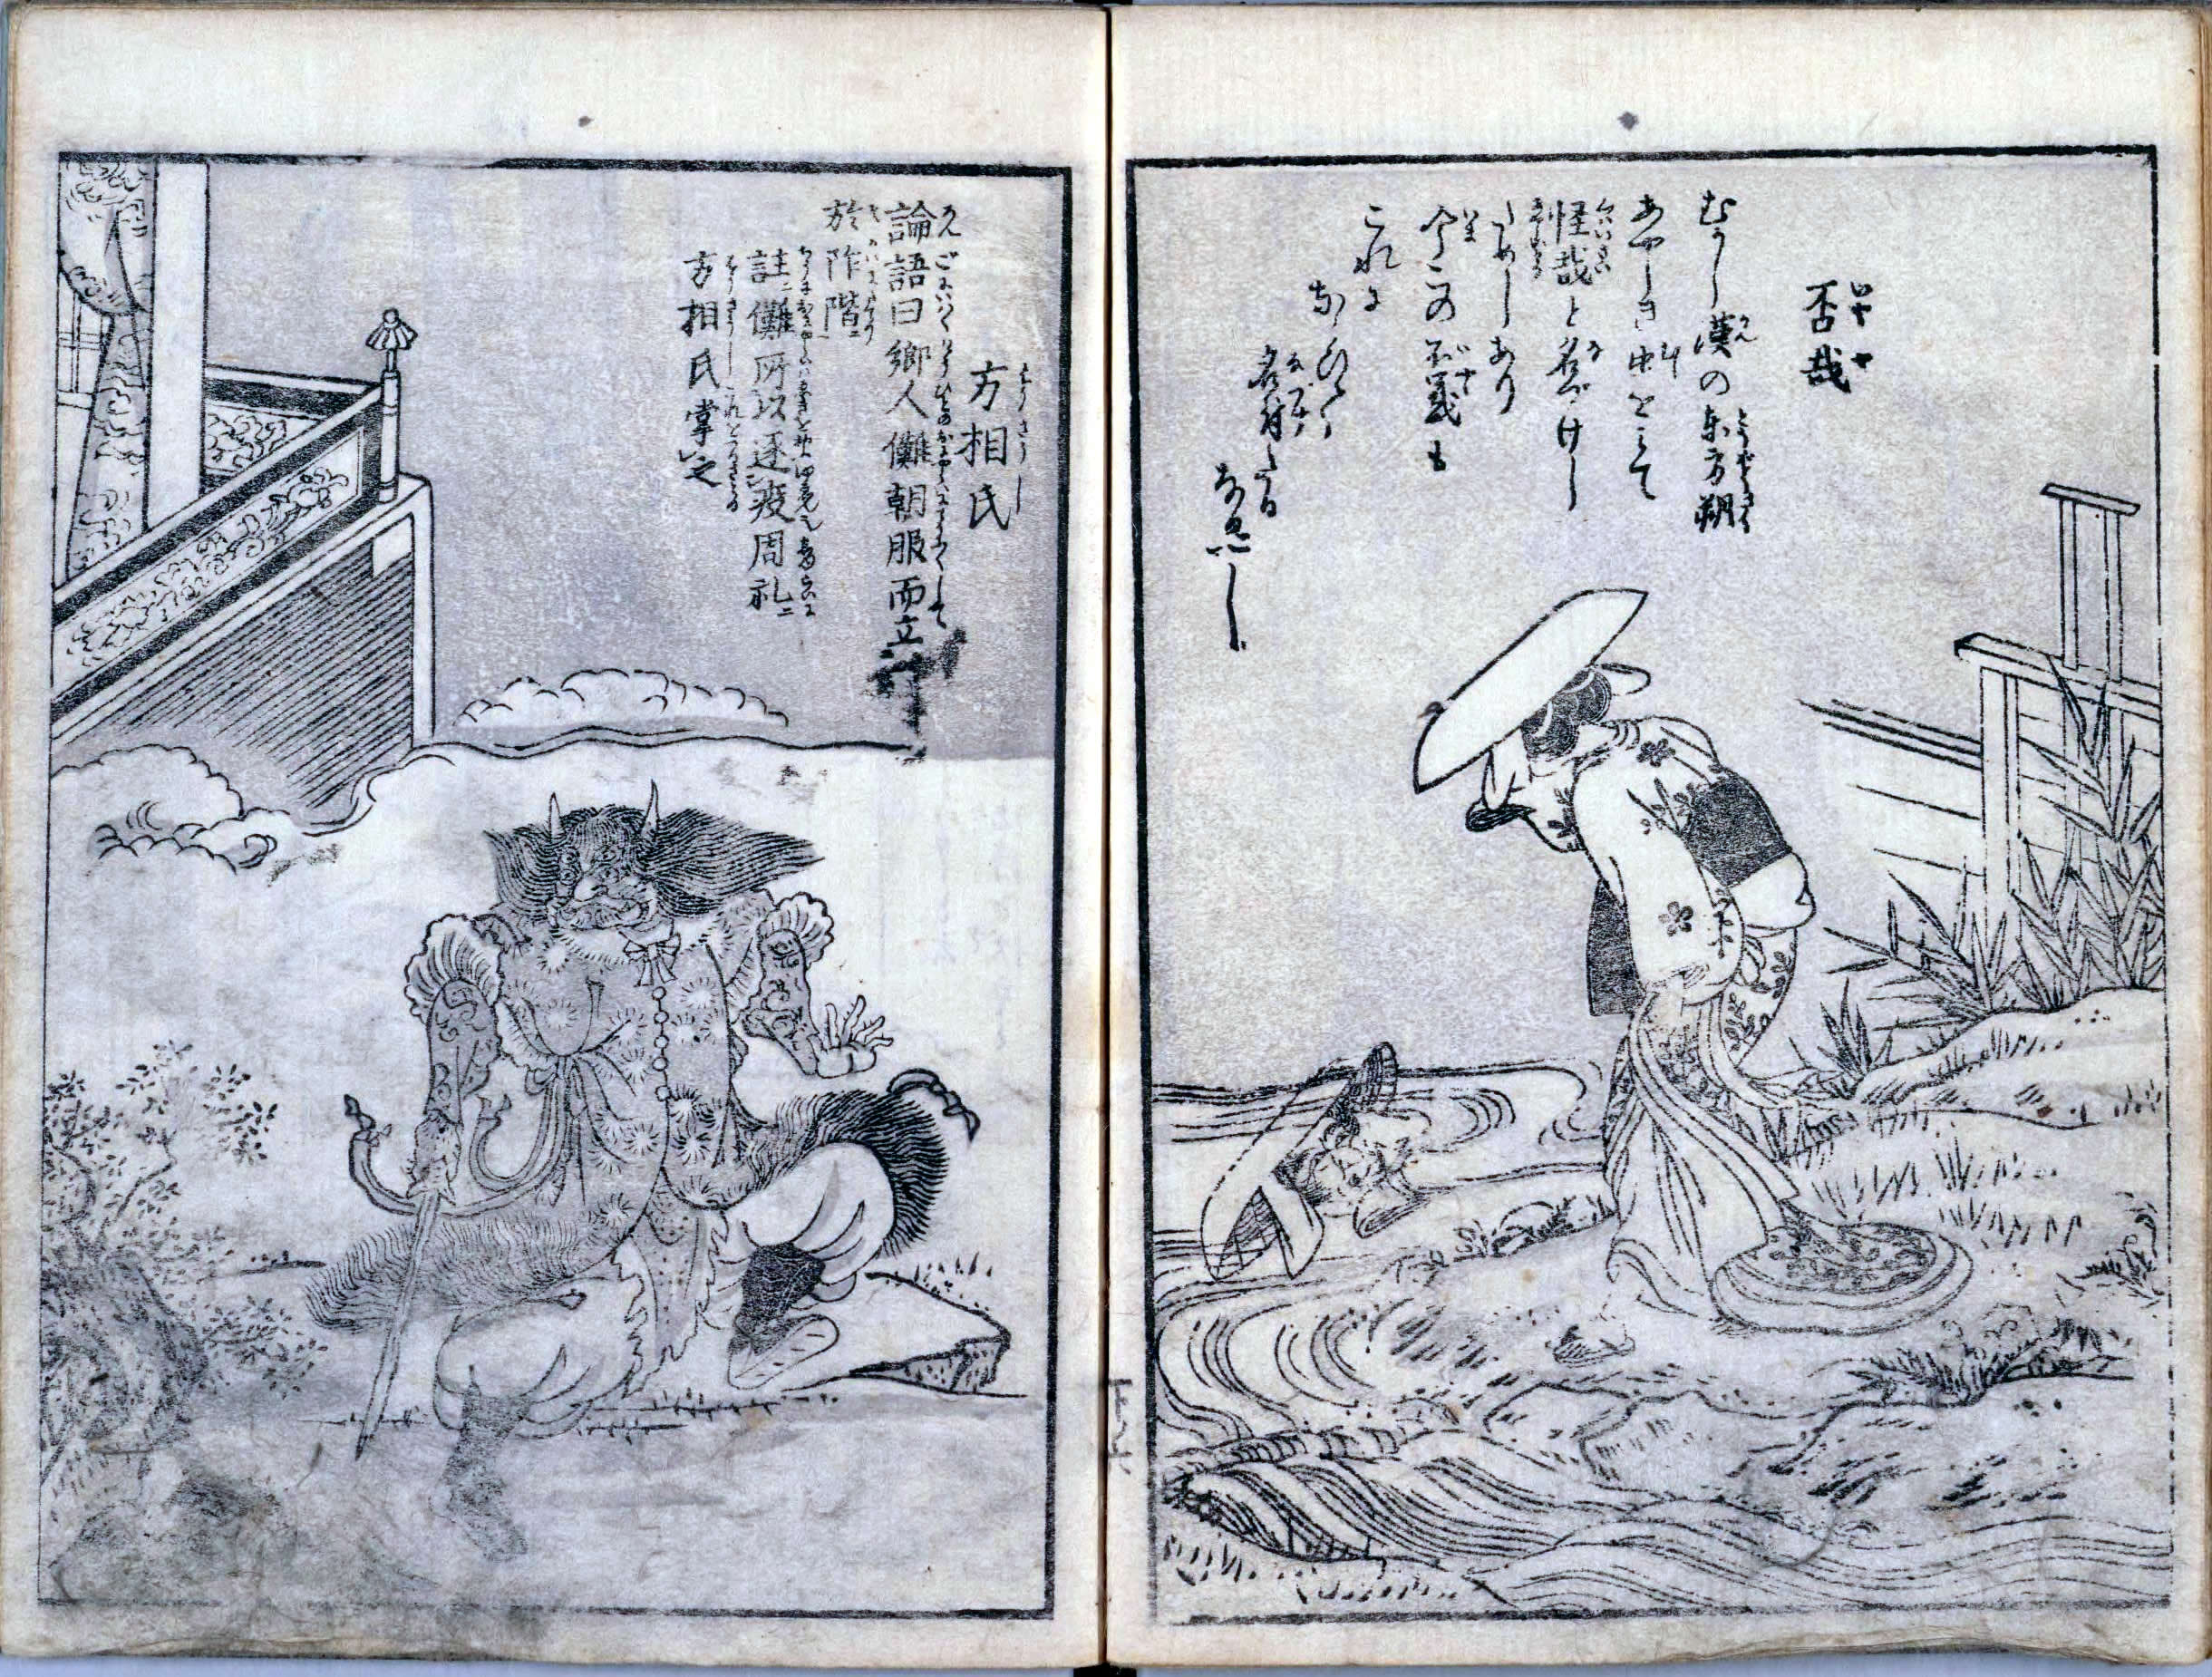 否哉
いやや
むかし漢の東方朔
あやしき虫をみて
怪哉と名づけし
ためしあり
今この否哉も
これに
なぞらへて
名付たる
なるべし
方相氏
論語曰郷人儺朝服而立
於阼階
註儺所以逐疫周礼ニ
方相氏掌之